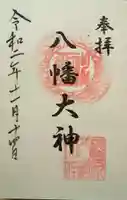 奉拝
八幡大神
令和二年十一月十四日